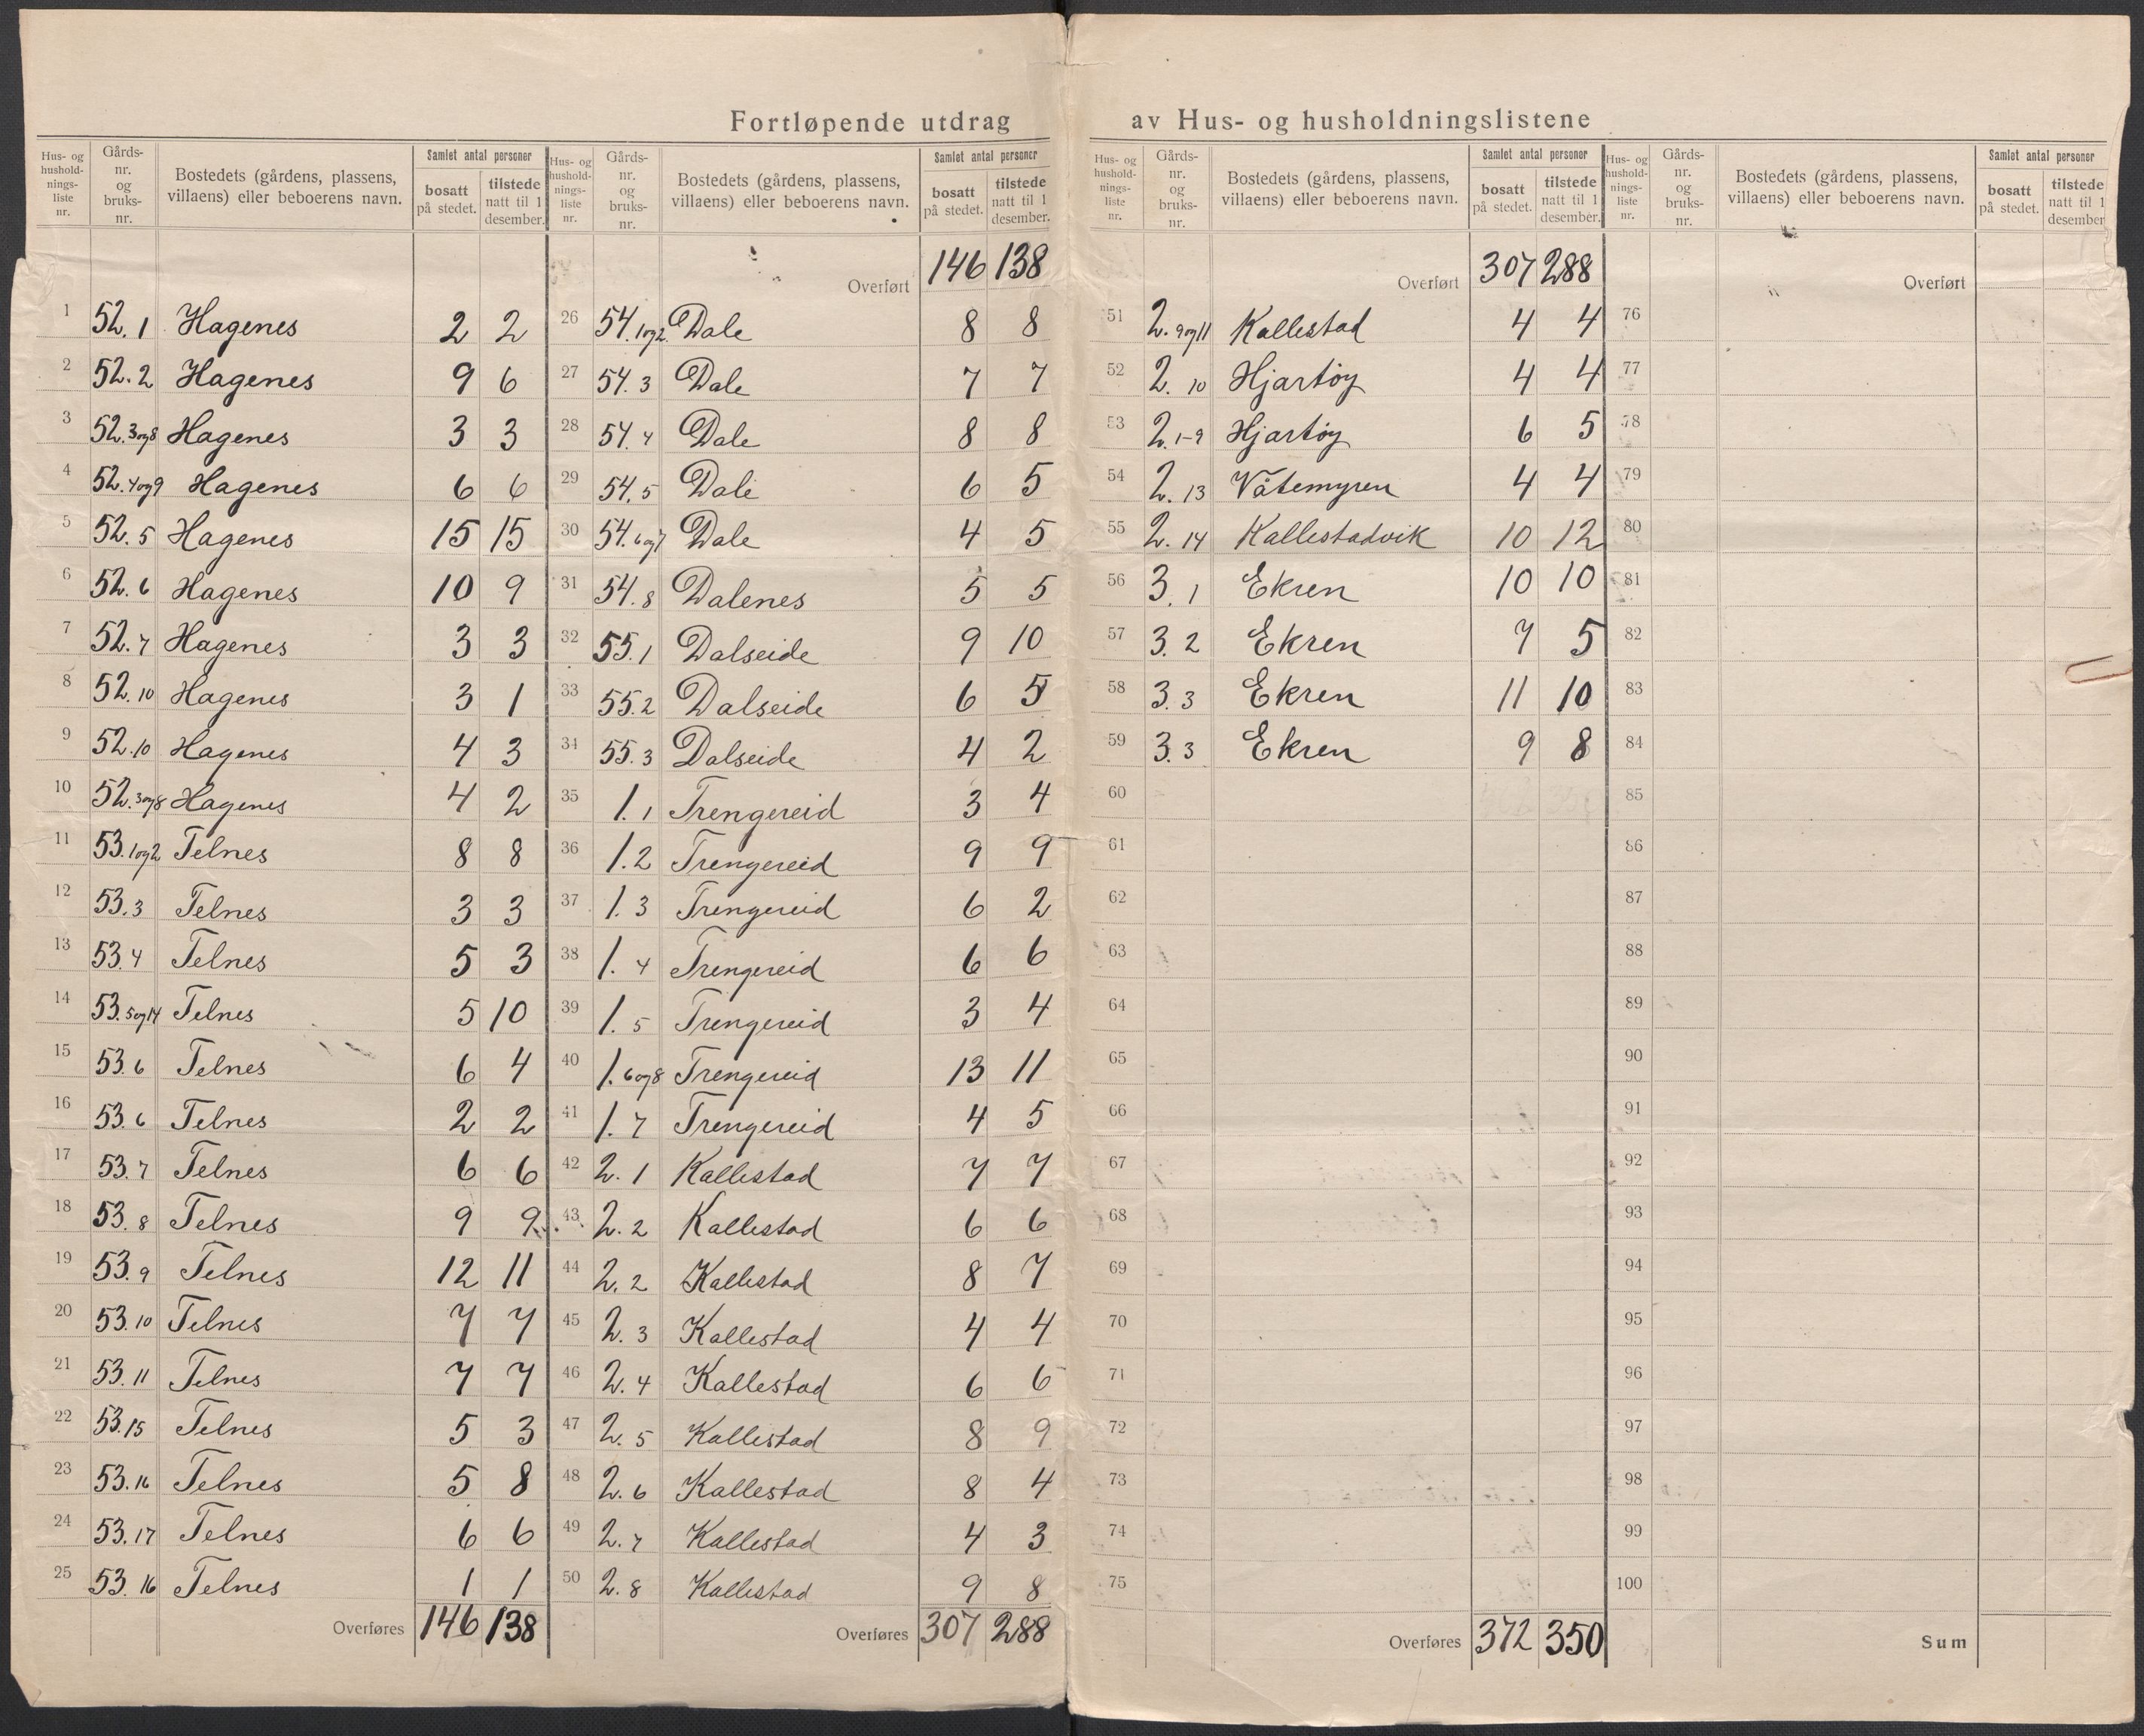 Fortløpende utdrag av Hus- og husholdningslistene
Hus- og hushold-nings-liste nr. Gårds-nr. og bruks-nr. Bostedets (gårdens, plassens, villaens) eller beboerens navn. Samlet antal personer bosatt på stedet. tilstede natt til 1 desember.
1 52.1 Hagenes 2 2
2 52.2 Hagenes 9 6
3 52.3og8 Hagenes 3 3
4 52.4og9 Hagenes 6 6
5 52.5 Hagenes 15 15
6 52.6 Hagenes 10 9
7 52.7 Hagenes 3 3
8 52.10 Hagenes 3 1
9 52.10 Hagenes 4 3
10 52.3og8 Hagenes 4 2
11 53.1og2 Telnes 8 8
12 53.3 Telnes 3 3
13 53.4 Telnes 5 3
14 53.5og14 Telnes 5 10
15 53.6 Telnes 6 4
16 53.6 Telnes 2 2
17 53.7 Telnes 6 6
18 53.8 Telnes 9 9
19 53.9 Telnes 12 11
20 53.10 Telnes 7 7
21 53.11 Telnes 7 7
22 53.15 Telnes 5 3
23 53.16 Telnes 5 8
24 53.17 Telnes 6 6
25 53.16 Telnes 1 1
Overføres 146 138
Hus- og hushold-nings-liste nr. Gårds-nr. og bruks-nr. Bostedets (gårdens, plassens, villaens) eller beboerens navn. Samlet antal personer bosatt på stedet. tilstede natt til 1 desember.
Overført 146 138
26 54.1og2. Dale 8 8
27 54.3 Dale 7 7
28 54.4 Dale 8 8
29 54.5 Dale 6 5
30 54.6og7 Dale 4 5
31 54.8 Dalenes 5 5
32 55.1 Dalseide 9 10
33 55.2 Dalseide 6 5
34 55.3 Dalseide 4 2
35 1.1 Trengereid 3 4
36 1.2 Trengereid 9 9
37 1.3 Trengereid 6 2
38 1.4 Trengereid 6 6
39 1.5 Trengereid 3 4
40 1.6og8 Trengereid 13 11
41 1.7 Trengereid 4 5
42 2.1 Kallestad 7 7
43 2.2 Kallestad 6 6
44 2.2 Kallestad 8 7
45 2.3 Kallestad 4 4
46 2.4 Kallestad 6 6
47 2.5 Kallestad 8 9
48 2.6 Kallestad 8 4
49 2.7 Kallestad 4 3
50 2.8 Kallestad 9 8
Overføres 307 288
Hus- og hushold-nings-liste nr. Gårds-nr. og bruks-nr. Bostedets (gårdens, plassens, villaens) eller beboerens navn. Samlet antal personer bosatt på stedet. tilstede natt til 1 desember.
Overført 307 288
51 2.9og11 Kallestad 4 4
52 2.10 Hjartøy 4 4
53 2.1-9 Hjartøy 6 5
54 2.13 Våtemyren 4 4
55 2.14 Kallestadvik 10 12
56 3.1 Ekren 10 10
57 3.2 Ekren 7 5
58 3.3 Ekren 11 10
59 3.3 Ekren 9 8
60
61
62
63
64
65
66
67
68
69
70
71
72
73
74
75
Overføres 372 350
Hus- og hushold-nings-liste nr. Gårds-nr. og bruks-nr. Bostedets (gårdens, plassens, villaens) eller beboerens navn. Samlet antal personer bosatt på stedet. tilstede natt til 1 desember
Overført
76
77
78
79
80
81
82
83
84
85
86
87
88
89
90
91
92
93
94
95
96
97
98
99
100
Sum